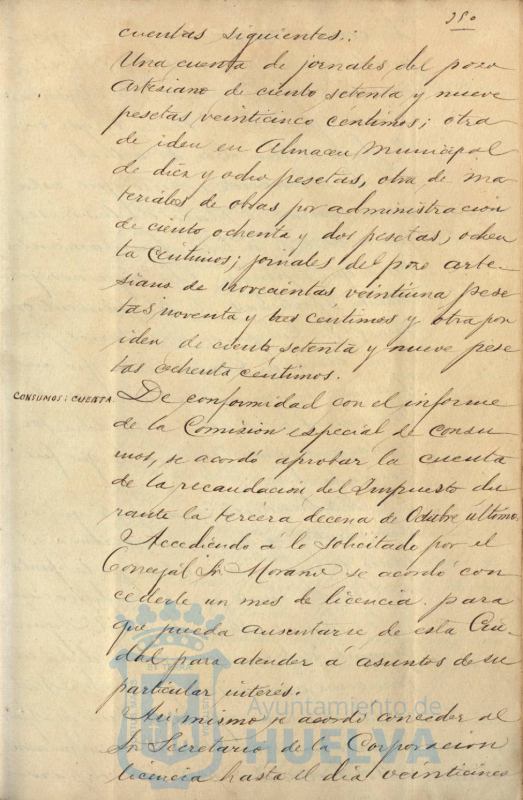 250
cuentas siguientes.:
Una cuenta de jornales del pozo
Artesiano de ciento setenta y nueve
pesetas veinticinco céntimos; otra
de iden en Almacen Municipal
de diez y ocho pesetas, otra de ma
teriales de obras por administracion
de ciento ochenta y dos pesetas, ochen
ta céntimos; jornales del pozo arte-
siano de novecientas veintiuna pese
tas noventa y tres centimos y otra por
iden de ciento setenta y nueve pese
tas ochenta céntimos.
CONSUMOS: CUENTA. De conformidad con el informe
de la Comision especial de consu
mos, se acordó aprobar la cuenta
de la recaudacion del Impuesto du
rante la tercera decena de Octubre último.
Accediendo á lo solicitado por el
Concejal Sr. Morano se acordó con
cederle un mes de licencia para
que pueda ausentarse de esta Ciu-
dad para atender á asuntos de su
particular interés.
Asi mismo se acordó conceder al
Sr. Secretario de la Corporacion
licencia hasta el dia veinticinco
Ayuntamiento de
HUELVA